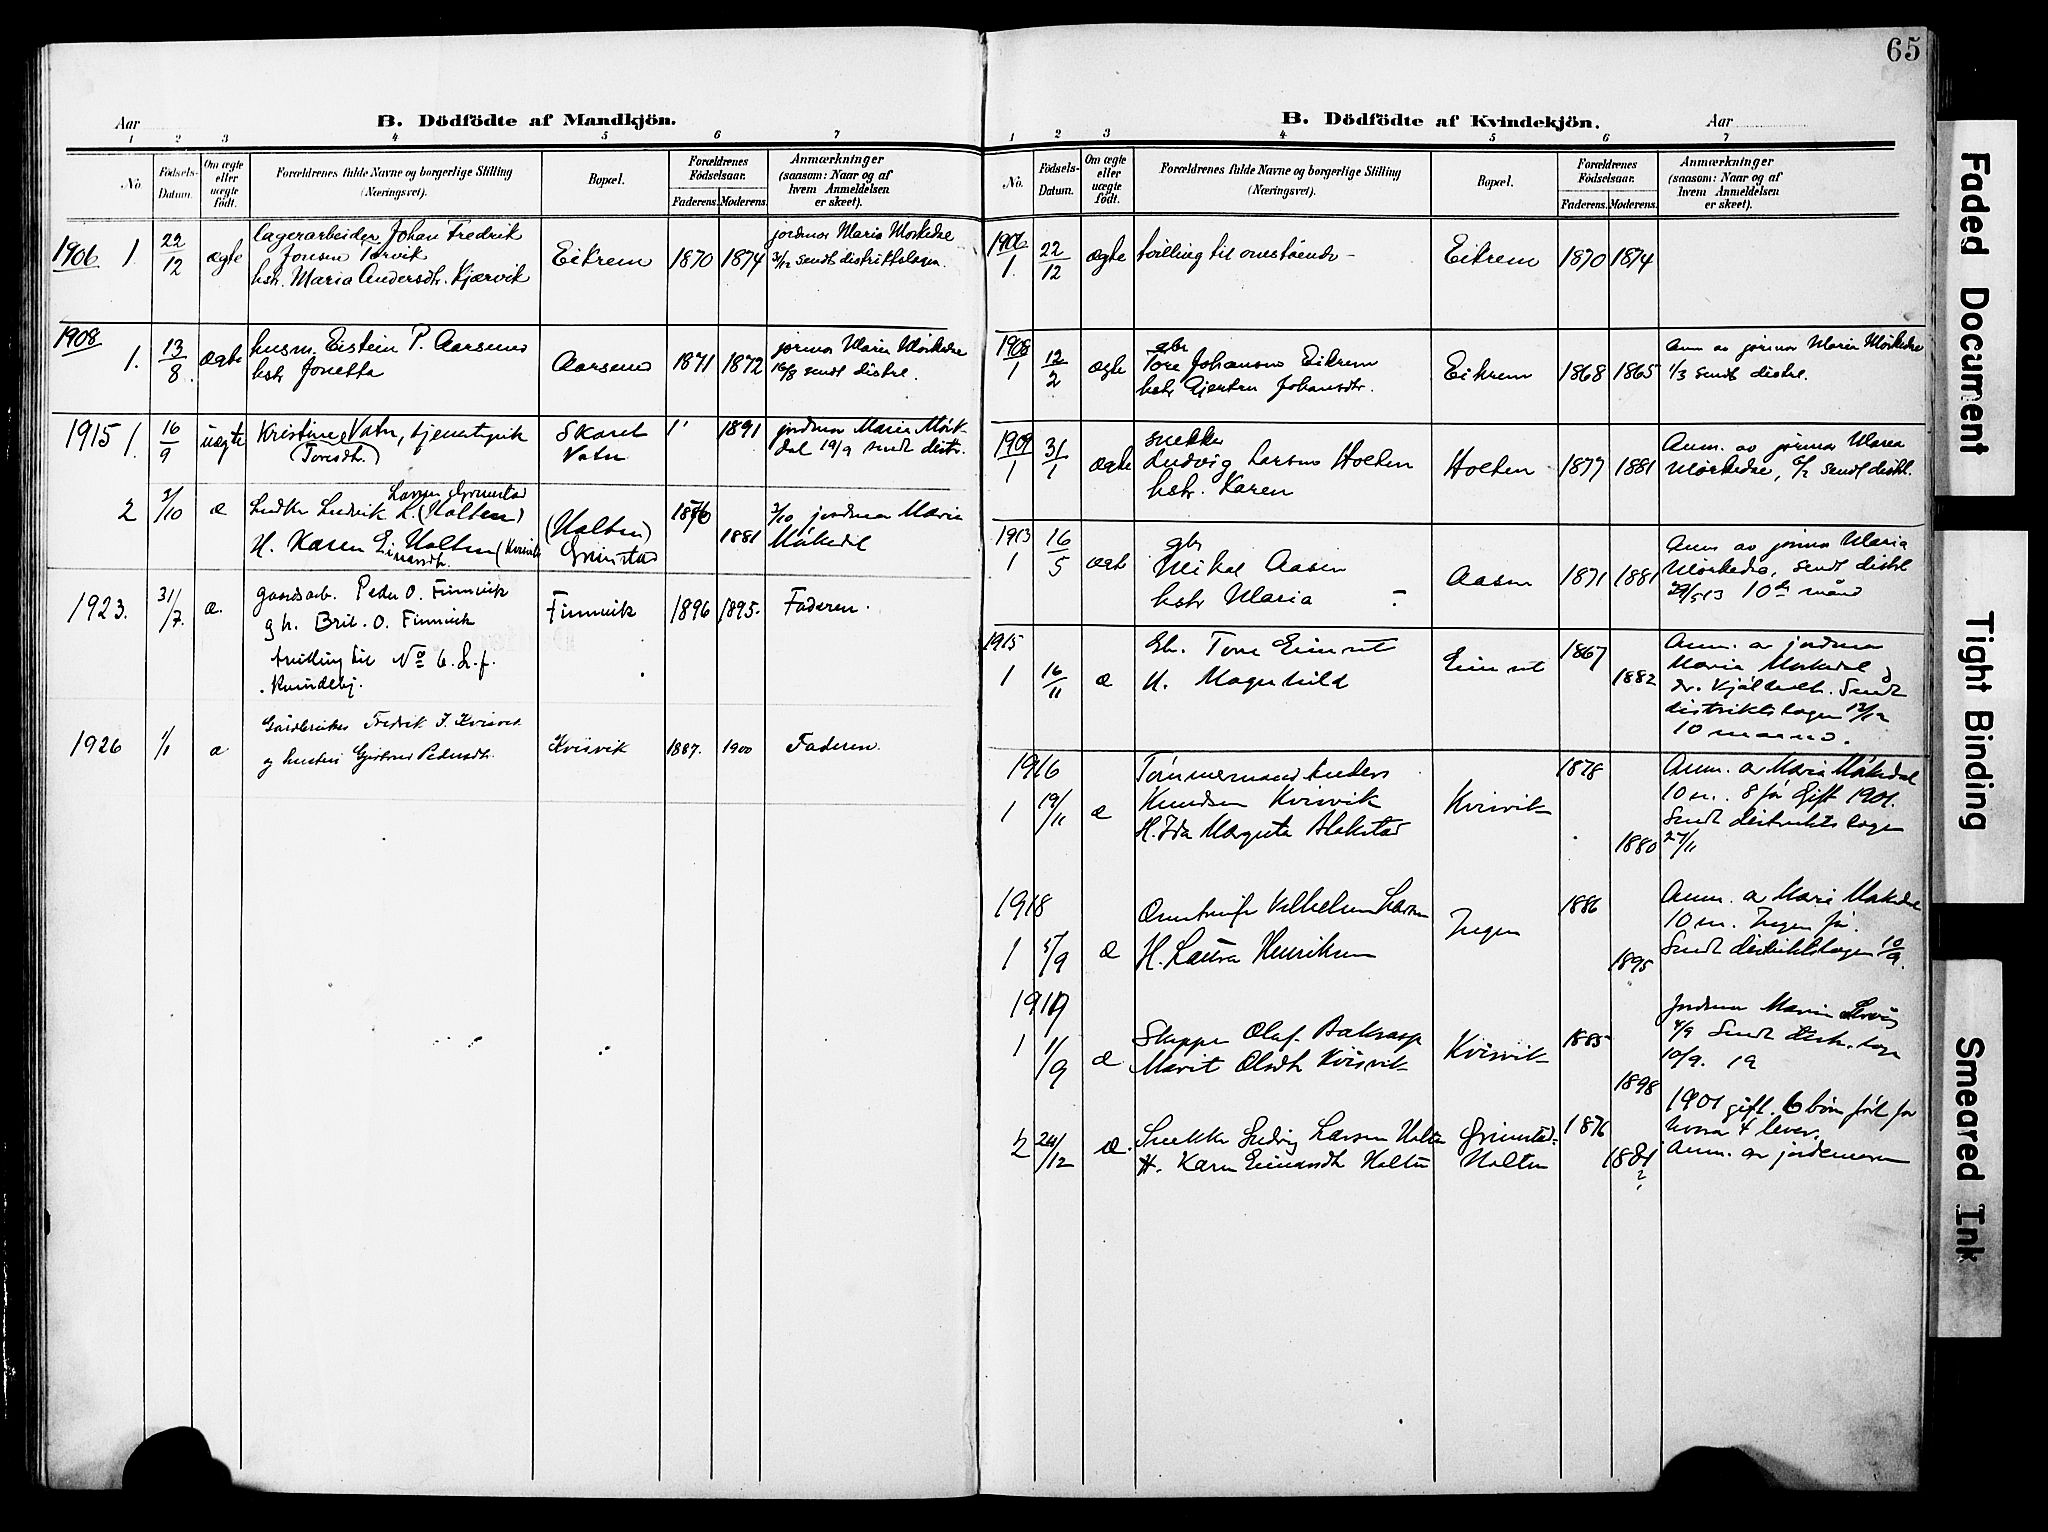 65
Aar
B. Dödfödte af Mandkjön.
1 2 3 4 5 6 7
No. Fødsels-Datum. Om ægte eller uægte født. Forældrenes fulde Navne og borgerlige Stilling (Næringsvei). Bopæl. Forældrenes Fødselsaar. Faderens. Moderens. Anmærkninger (saasom: Naar og af hvem Anmeldelsen er skeet).
1906 1. 22/12 ægte lagerarbeider Johan Fredrik
Jonsen Torvik
hstr. Maria Andersdtr. Kjørvik
Eikrem 1870 1874
jordmor Maria Morkedal
sendt distriktslægen.
1908
1. 13/8. ægte husm. Eistein P. Aarsund
hstr Jonetta
Aarsund 1871 1872
jormor Maria Morkedal
16/8 sendt distrl.
1915 1. 16/9 uægte Kristine Vatn,
(Toresdtr.)
Skaret
Vatn
1891
jordmor Maria Mørk-
dal 19/9 sendt distr.
2 3/10 æ Ludvik L. (Holten)
Larsen Grimstad
H. Karen Einarsdtr. Holten (Kvisvik
(Holten)
Grimstad
1876
1881
3/10 jordmor Maria
1923. 31/7. æ. gaardsarb. Peder O. Finnvik
g h. Brit. O. Finnvik
tvilling til No 6. L. f.
Kvindekj.
Finnvik 1896 1895. Faderen.
1926 1/1 æ Gårdbruker Fredrik J. Kvisvik
og hustru Pedersdtr.
Kvisvik 1887. 1900 Faderen.
B. Dödfödte af Kvindekjön.
Aar
1 2 3 4 5 6 7
No. Fødsels-Datum. Om ægte eller uægte født. Forældrenes fulde Navne og borgerlige Stilling (Næringsvei). Bopæl. Forældrenes Fødselsaar. Faderens. Moderens. Anmærkninger (saasom: Naar og af hvem Anmeldelsen er skeet).
1906
1. 22/12 ægte tvilling til ovestående - Eikrem 1870 1874
1908
1 12/2 ægte gbr
Tore Johansen Eikrem
hstr Gjertru Johansdtr.
Eikrem 1868 1865
Anm av jormor Maria Morkedal
1/3 sendt distrl.
1909
1 31/1 ægte snekker
Ludvig Larsen Holten
hstr. Karen
Holten 1877 1881
Anm. av jormor Maria
Morkedal, sendt distrl.
1913
1 16/5 ægte gbr
Mikal Aasen
hstr Maria -
Aasen 1871 1881
Anm av jormor Maria
Morkedal, sendt distrl
29/5 13 10de månd
1915
1 16/11 æ Gbr. Tore Eimset
H. Magnhild
Eimset 1867
1882
Anm. av jordmor
Maria Morkedal
Sendt
distriktslægen 12/12
10 maaned.
1916
1 19/11 æ Tømmermand Anders
Knudsen Kvisvik
H. Ida Margrete Blakstad
Kvisvik 1878
1880
Anm. av Maria Mørkedal
10 m. 8 før Gift 1901.
Sendt distriktslægen
27/11
1918
1 5/9 æ Vilhelm Larsen
H. Laura Henriksen
Ingen
1886
1895
Anm. av Mari Mørkedal
10 m. Ingen før.
Sendt distriktslægen 10/9.
1919
1 1/9 æ Skipper Olaf
Marit Olsdtr Kvisvik
Kvisvik 1885
1898
Jordmor Marie
4/9 Sendt distr. læge
10/9. 19
2 24/12 æ. Snekker Ludvig Larsen Holten
H. Karen Einarsdtr Holten
Grimstad-
Holten
1876
1881
?
1901 gift. 6 børn født før
hvorav 4 lever.
Anm. av jordemoren
Faded Document
Tight Binding
Smeared Ink